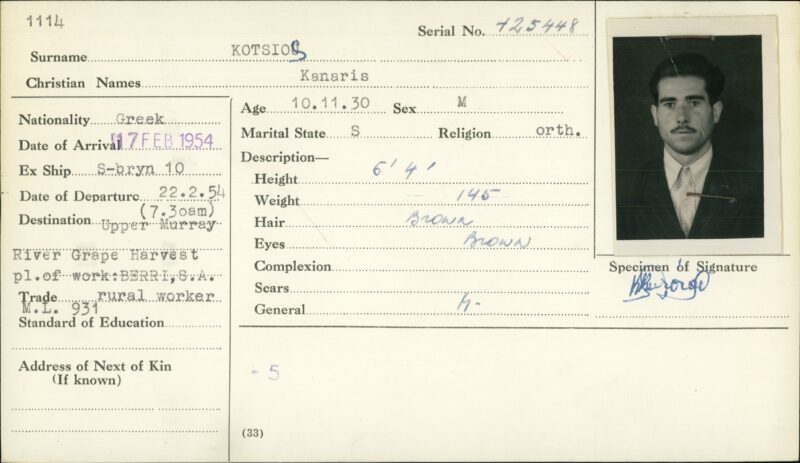 1114
Serial No. 425448
Surname KOTSIOS
Christian Names Kanaris
Nationality Greek
Date of Arrival 17 FEB 1954
Ex Ship S-bryn 10
Date of Departure 22.2.54
(7.3oam)
Destination Upper Murray
River Grape Harvest
pl.of work:BERRI,S.A.
Trade rural worker
M.L. 931
Standard of Education
Address of Next of Kin
(If known)
Age 10.11.30 Sex M
Marital State S Religion orth.
Description—
Height 6' 4'
Weight 145
Hair Brown
Eyes Brown
Complexion
Scars
General
- 5
(33)
Specimen of Signature